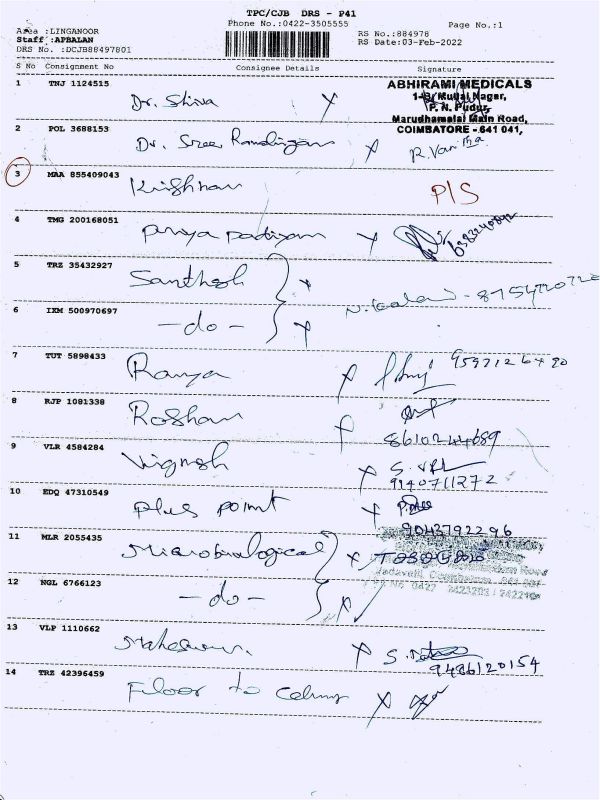 TPC/CJB DRS - P41
Phone No.:0422-3505555
Page No.:1
Area :LINGANOOR
Staff :APBALAN
DRS No. :DCJB88497801
RS No.:884978
RS Date:03-Feb-2022
S No Consignment No Consignee Details Signature
1 TNJ 1124515 Dr. Shiva X
ABHIRAMI MEDICALS
Nagar,
P. N. Pudur,
Marudhamalai Main Road,
COIMBATORE - 641 041,
2 POL 3688153 Dr. Sree X R. Vanitha
3 MAA 855409043 Krishnan P/S
4 TMG 200168051 Priya X
5 TRZ 35432927 Santhosh X
6 IXM 500970697 -do- X
7 TUT 5898433 Ramya X
8 RJP 1081338 Roshan X
8610244689
9 VLR 4584284 Vignesh X S.
9940711272
10 EDQ 47310549 Plus point X
9043792296
11 MLR 2055435 Microbiological X
12 NGL 6766123 -do- X
13 VLP 1110662 X S.
9486120154
14 TRZ 42396459 Floor to X